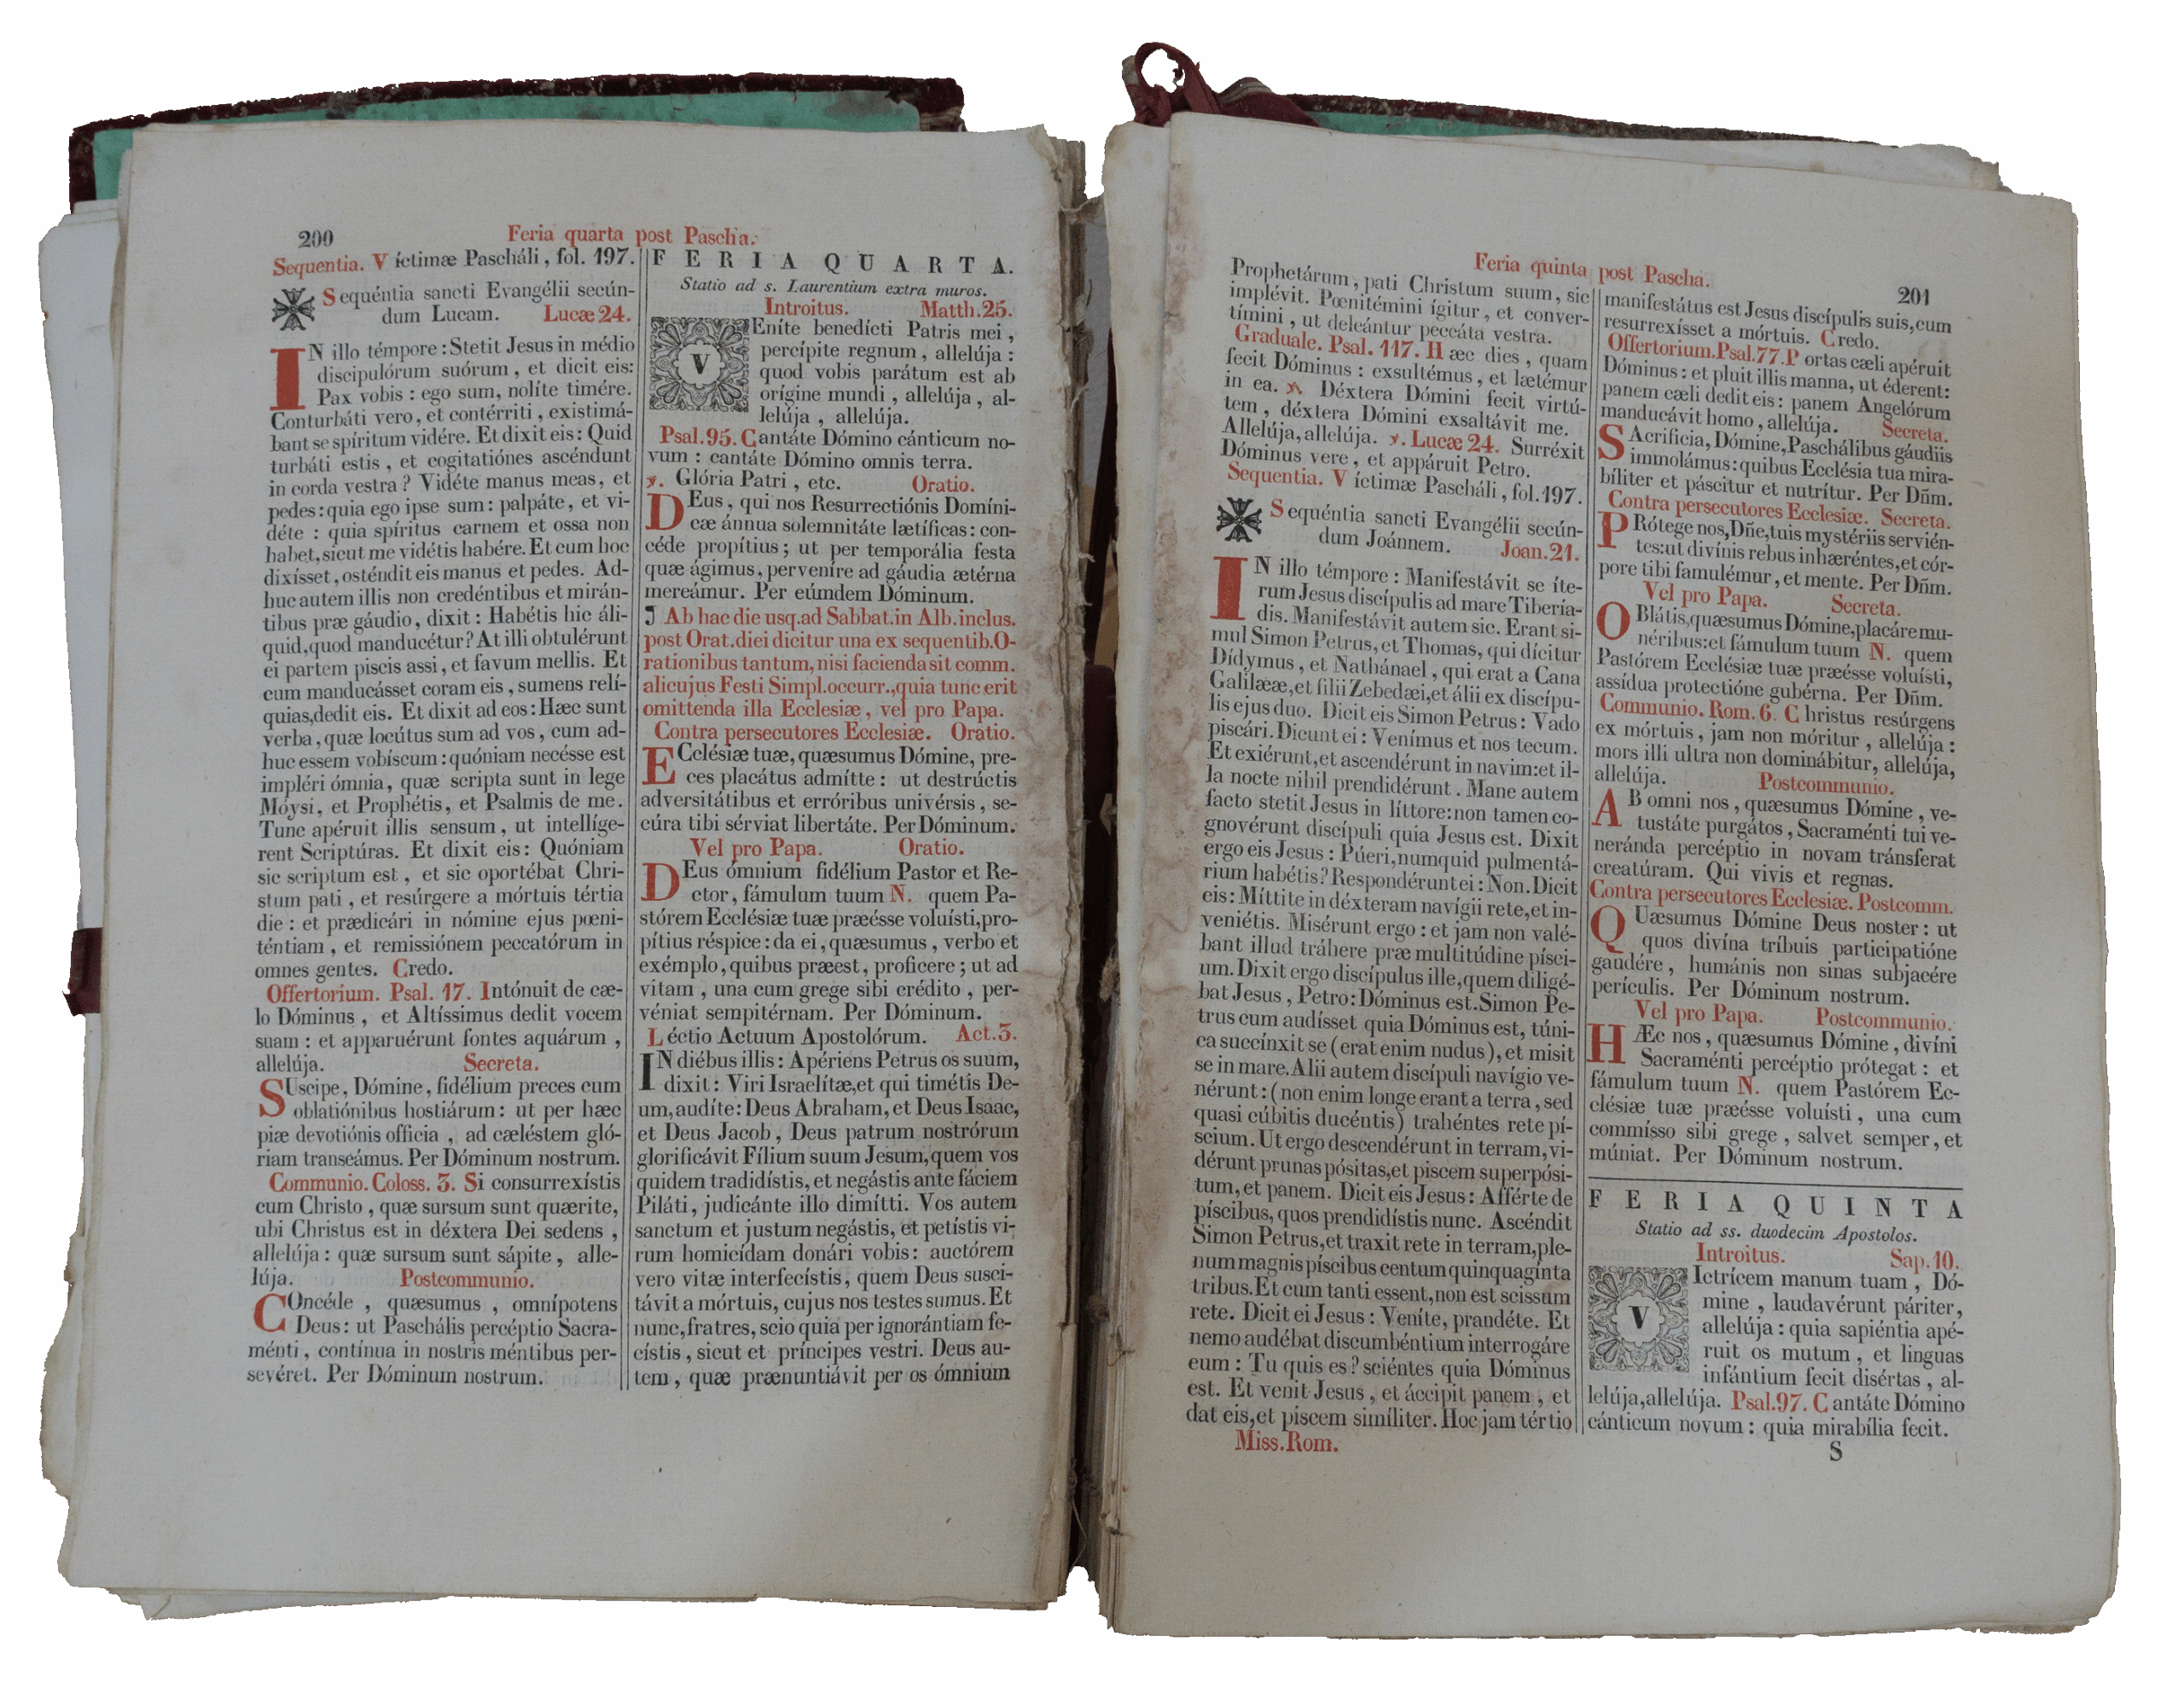 200
Feria quarta post Pascha.
Sequentia. Víctimæ Pascháli, fol. 197.
Sequéntia sancti Evangélii secún-
dum Lucam. Lucæ 24.
IN illo témpore: Stetit Jesus in médio
discipulórum suórum, et dicit eis:
Pax vobis: ego sum, nolíte timére.
Conturbáti vero, et contérriti, existimá-
bant se spíritum vidére. Et dixit eis: Quid
turbáti estis, et cogitatiónes ascéndunt
in corda vestra? Vidéte manus meas, et
pedes: quia ego ipse sum: palpáte, et vi-
déte: quia spíritus carnem et ossa non
habet, sicut me vidétis habére. Et cum hoc
dixísset, osténdit eis manus et pedes. Ad-
huc autem illis non credéntibus et mirán-
tibus præ gáudio, dixit: Habétis hic áli-
quid, quod manducétur? At illi obtulérunt
ei partem piscis assi, et favum mellis. Et
cum manducásset coram eis, sumens relí-
quias, dedit eis. Et dixit ad eos: Hæc sunt
verba, quæ locútus sum ad vos, cum ad-
huc essem vobíscum: quóniam necésse est
impléri ómnia, quæ scripta sunt in lege
Móysi, et Prophétis, et Psalmis de me.
Tunc apéruit illis sensum, ut intellíge-
rent Scriptúras. Et dixit eis: Quóniam
sic scriptum est, et sic oportébat Chri-
stum pati, et resúrgere a mórtuis tértia
die: et prædicári in nómine ejus pœni-
téntiam, et remissiónem peccatórum in
omnes gentes. Credo.
Offertorium. Psal. 17. Intónuit de cæ-
lo Dóminus, et Altíssimus dedit vocem
suam: et apparuérunt fontes aquárum,
allelúja. Secreta.
SUscipe, Dómine, fidélium preces cum
oblatiónibus hostiárum: ut per hæc
piæ devotiónis officia, ad cæléstem gló-
riam transeámus. Per Dóminum nostrum.
Communio. Coloss. 3. Si consurrexístis
cum Christo, quæ sursum sunt quærite,
ubi Christus est in déxtera Dei sedens,
allelúja: quæ sursum sunt sápite, alle-
lúja. Postcommunio.
COncéde, quæsumus, omnípotens
Deus: ut Paschális percéptio Sacra-
ménti, contínua in nostris méntibus per-
sevéret. Per Dóminum nostrum.
FERIA QUARTA.
Statio ad s. Laurentium extra muros.
Introitus. Matth. 25.
VEníte benedícti Patris mei,
percípite regnum, allelúja:
quod vobis parátum est ab
orígine mundi, allelúja, al-
lelúja, allelúja.
Psal. 95. Cantáte Dómino cánticum no-
vum: cantáte Dómino omnis terra.
℣. Glória Patri, etc. Oratio.
DEus, qui nos Resurrectiónis Domíni-
cæ ánnua solemnitáte lætíficas: con-
céde propítius; ut per temporália festa
quæ ágimus, perveníre ad gáudia ætérna
mereámur. Per eúmdem Dóminum.
¶ Ab hac die usq. ad Sabbat. in Alb. inclus.
post Orat. diei dicitur una ex sequentib. O-
rationibus tantum, nisi facienda sit comm.
alicujus Festi Simpl. occurr., quia tunc erit
omittenda illa Ecclesiæ, vel pro Papa.
Contra persecutores Ecclesiæ. Oratio.
ECclésiæ tuæ, quæsumus Dómine, pre-
ces placátus admítte: ut destrúctis
adversitátibus et erróribus univérsis, se-
cúra tibi sérviat libertáte. Per Dóminum.
Vel pro Papa. Oratio.
DEus ómnium fidélium Pastor et Re-
ctor, fámulum tuum N. quem Pa-
stórem Ecclésiæ tuæ præésse voluísti, pro-
pítius réspice: da ei, quæsumus, verbo et
exémplo, quibus præest, proficere; ut ad
vitam, una cum grege sibi crédito, per-
véniat sempitérnam. Per Dóminum.
Léctio Actuum Apostolórum. Act. 3.
IN diébus illis: Apériens Petrus os suum,
dixit: Viri Israelítæ, et qui timétis De-
um, audíte: Deus Abraham, et Deus Isaac,
et Deus Jacob, Deus patrum nostrórum
glorificávit Fílium suum Jesum, quem vos
quidem tradidístis, et negástis ante fáciem
Piláti, judicánte illo dimítti. Vos autem
sanctum et justum negástis, et petístis vi-
rum homicídam donári vobis: auctórem
vero vitæ interfecístis, quem Deus susci-
távit a mórtuis, cujus nos testes sumus. Et
nunc, fratres, scio quia per ignorántiam fe-
cístis, sicut et príncipes vestri. Deus au-
tem, quæ prænuntiávit per os ómnium
Feria quinta post Pascha.
201
Prophetárum, pati Christum suum, sic
implévit. Pœnitémini ígitur, et conver-
tímini, ut deleántur peccáta vestra.
Graduale. Psal. 117. Hæc dies, quam
fecit Dóminus: exsultémus, et lætémur
in ea. ℣. Déxtera Dómini fecit virtú-
tem, déxtera Dómini exsaltávit me.
Allelúja, allelúja. ℣. Lucæ 24. Surréxit
Dóminus vere, et appáruit Petro.
Sequentia. Víctimæ Pascháli, fol. 197.
Sequéntia sancti Evangélii secún-
dum Joánnem. Joan. 21.
IN illo témpore: Manifestávit se íte-
rum Jesus discípulis ad mare Tibería-
dis. Manifestávit autem sic. Erant si-
mul Simon Petrus, et Thomas, qui dícitur
Dídymus, et Nathánael, qui erat a Cana
Galilææ, et filii Zebedæi, et álii ex discípu-
lis ejus duo. Dicit eis Simon Petrus: Vado
piscári. Dicunt ei: Venímus et nos tecum.
Et exiérunt, et ascendérunt in navim: et il-
la nocte nihil prendidérunt. Mane autem
facto stetit Jesus in líttore: non tamen co-
gnovérunt discípuli quia Jesus est. Dixit
ergo eis Jesus: Púeri, numquid pulmentá-
rium habétis? Respondérunt ei: Non. Dicit
eis: Míttite in déxteram navígii rete, et in-
veniétis. Misérunt ergo: et jam non valé-
bant illud tráhere præ multitúdine písci-
um. Dixit ergo discípulus ille, quem diligé-
bat Jesus, Petro: Dóminus est. Simon Pe-
trus cum audísset quia Dóminus est, túni-
ca succínxit se (erat enim nudus), et misit
se in mare. Alii autem discípuli navígio ve-
nérunt: (non enim longe erant a terra, sed
quasi cúbitis ducéntis) trahéntes rete pí-
scium. Ut ergo descendérunt in terram, vi-
dérunt prunas pósitas, et piscem superpósi-
tum, et panem. Dicit eis Jesus: Afférte de
píscibus, quos prendidístis nunc. Ascéndit
Simon Petrus, et traxit rete in terram, ple-
num magnis píscibus centum quinquagínta
tribus. Et cum tanti essent, non est scissum
rete. Dicit ei Jesus: Veníte, prandéte. Et
nemo audébat discumbéntium interrogáre
eum: Tu quis es? sciéntes quia Dóminus
est. Et venit Jesus, et áccipit panem, et
dat eis, et piscem simíliter. Hoc jam tértio
Miss. Rom.
manifestátus est Jesus discípulis suis, cum
resurrexísset a mórtuis. Credo.
Offertorium. Psal. 77. Portas cæli apéruit
Dóminus: et pluit illis manna, ut éderent:
panem cæli dedit eis: panem Angelórum
manducávit homo, allelúja. Secreta.
SAcrificia, Dómine, Paschálibus gáudiis
immolámus: quibus Ecclésia tua mira-
bíliter et páscitur et nutrítur. Per Dñm.
Contra persecutores Ecclesiæ. Secreta.
PRótege nos, Dñe, tuis mystériis servién-
tes: ut divínis rebus inhæréntes, et cór-
pore tibi famulémur, et mente. Per Dñm.
Vel pro Papa. Secreta.
OBlátis, quæsumus Dómine, placáre mu-
néribus: et fámulum tuum N. quem
Pastórem Ecclésiæ tuæ præésse voluísti,
assídua protectióne gubérna. Per Dñm.
Communio. Rom. 6. Christus resúrgens
ex mórtuis, jam non móritur, allelúja:
mors illi ultra non dominábitur, allelúja,
allelúja. Postcommunio.
AB omni nos, quæsumus Dómine, ve-
tustáte purgátos, Sacraménti tui ve-
neránda percéptio in novam tránsferat
creatúram. Qui vivis et regnas.
Contra persecutores Ecclesiæ. Postcomm.
QUæsumus Dómine Deus noster: ut
quos divína tríbuis participatióne
gaudére, humánis non sinas subjacére
perículis. Per Dóminum nostrum.
Vel pro Papa. Postcommunio.
HÆc nos, quæsumus Dómine, divíni
Sacraménti percéptio prótegat: et
fámulum tuum N. quem Pastórem Ec-
clésiæ tuæ præésse voluísti, una cum
commísso sibi grege, salvet semper, et
múniat. Per Dóminum nostrum.
FERIA QUINTA
Statio ad ss. duodecim Apostolos.
Introitus. Sap. 10.
VIctrícem manum tuam, Dó-
mine, laudavérunt páriter,
allelúja: quia sapiéntia apé-
ruit os mutum, et linguas
infántium fecit disértas, al-
lelúja, allelúja. Psal. 97. Cantáte Dómino
cánticum novum: quia mirabília fecit.
S